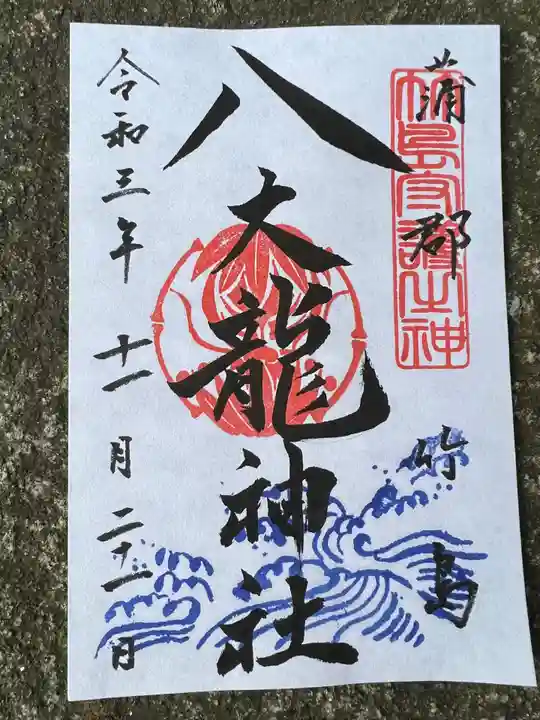 蒲郡 竹島
竹島守護之神
八大龍神社
令和三年 十一月 二十一日